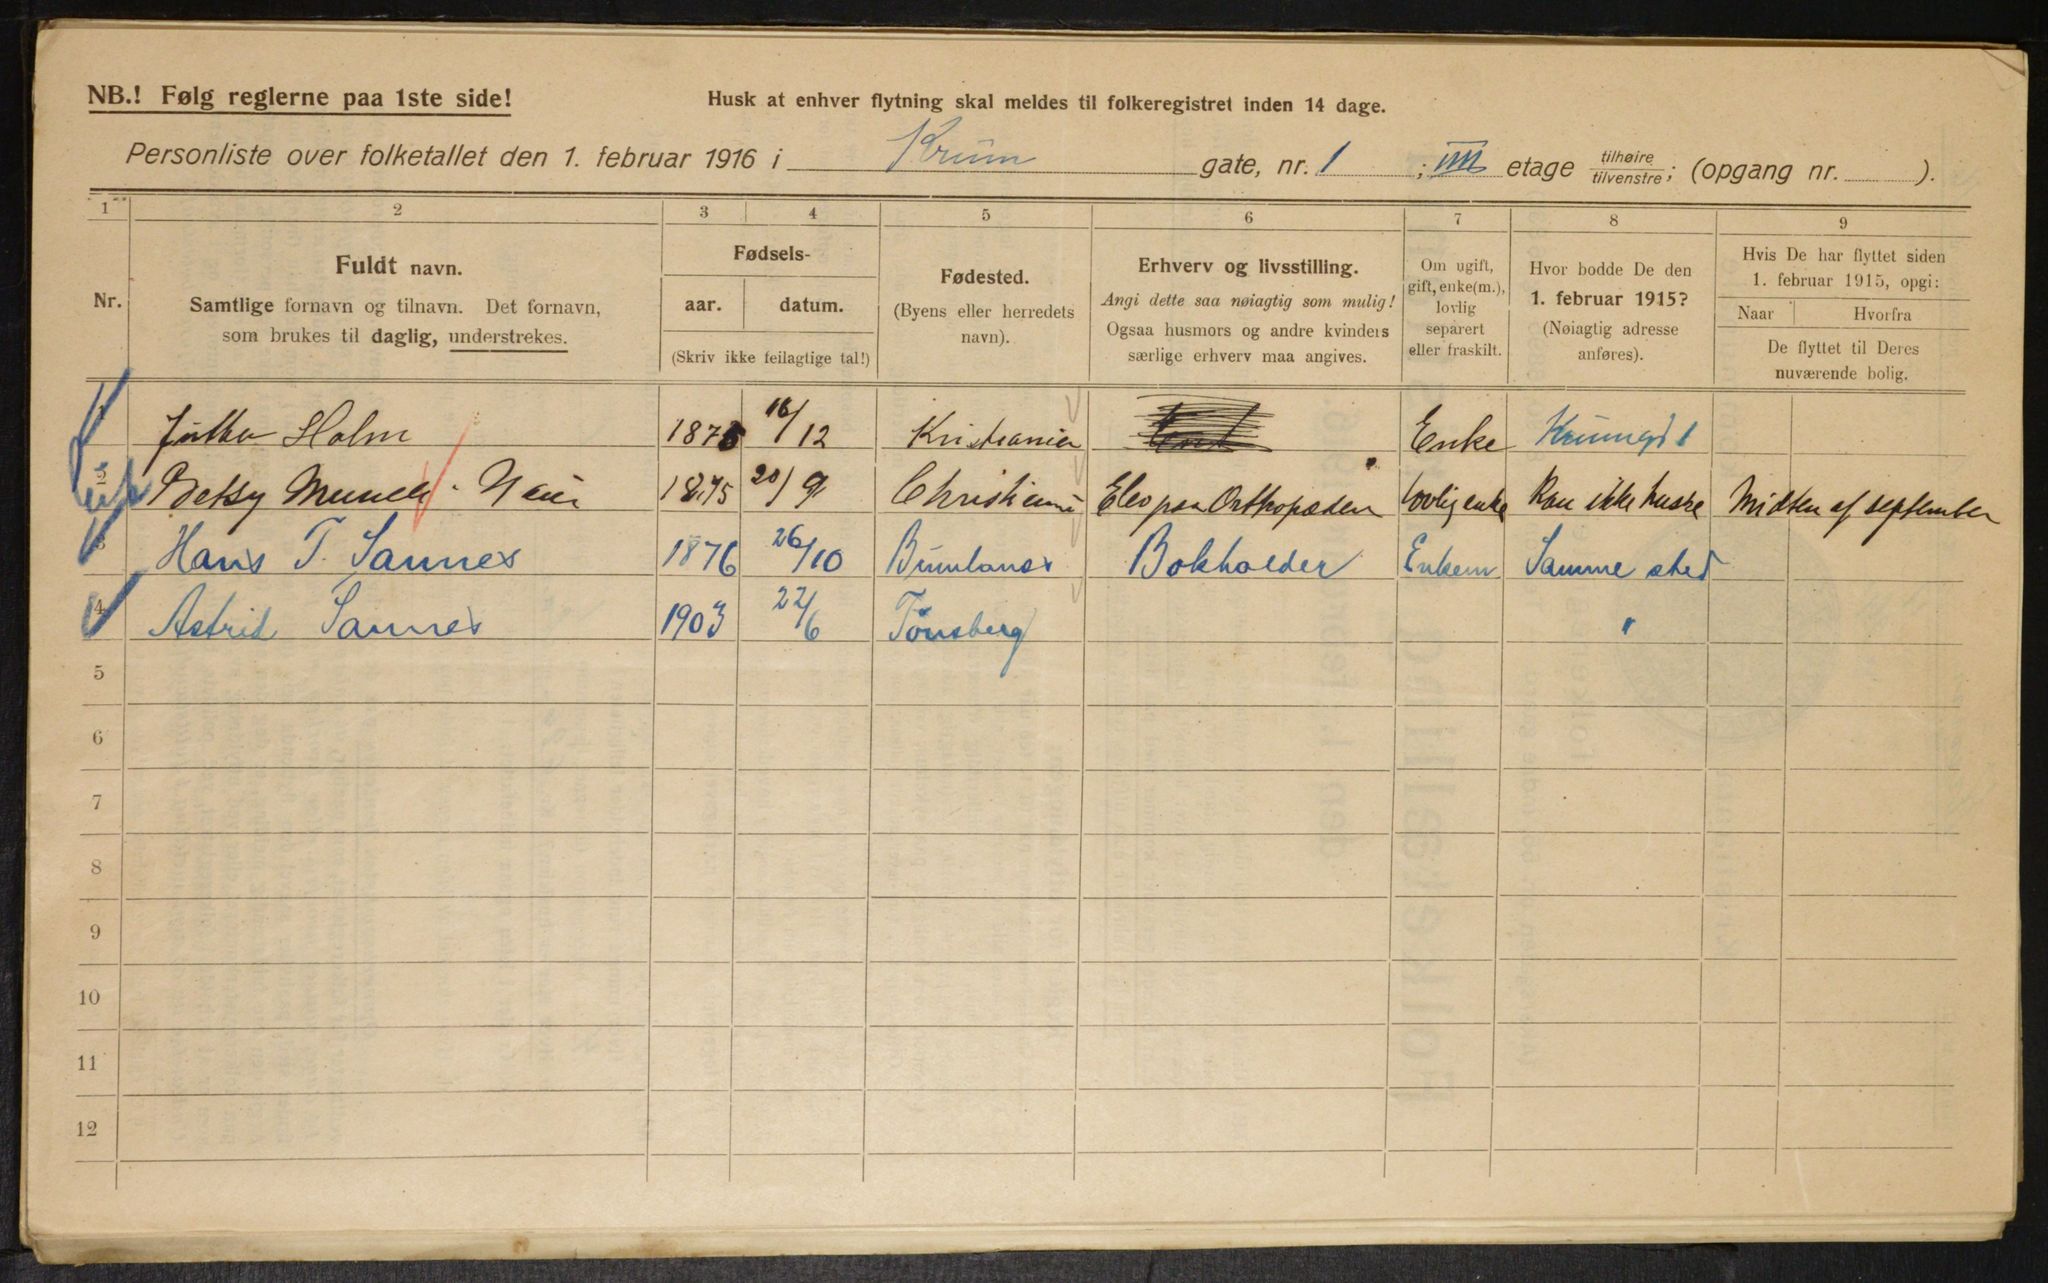 NB.! Følg reglerne paa 1ste side!
Husk at enhver flytning skal meldes til folkeregistret inden 14 dage.
Personliste over folketallet den 1. februar 1916 i Krum gate, nr. 1 ; IIII etage tilhøire tilvenstre; (opgang nr. ).
1 2 3 4 5 6 7 8 9
Nr.
Fuldt navn.
Samtlige fornavn og tilnavn. Det fornavn,
som brukes til daglig, understrekes.
Fødsels-
aar. datum.
(Skriv ikke feilagtige tal!)
Fødested.
(Byens eller herredets
navn).
Erhverv og livsstilling.
Angi dette saa nøiagtig som mulig!
Ogsaa husmors og andre kvinders
særlige erhverv maa angives.
Om ugift,
gift, enke(m.),
lovlig
separert
eller fraskilt.
Hvor bodde De den
1. februar 1915?
(Nøiagtig adresse
anføres).
Hvis De har flyttet siden
1. februar 1915, opgi:
Naar Hvorfra
De flyttet til Deres
nuværende bolig.
Holm 16/12 Kristiania Enke Krumgt 1
Betsy 1875 20/9 Elev paa Orthopæden enke Kan ikke huske Midten af september
3 Hans T. Sannes 1876 26/10 Bokholder Enkem Samme sted
4 Astrid Sannes 1903 22/6 Tönsberg "
5
6
7
8
9
10
11
12